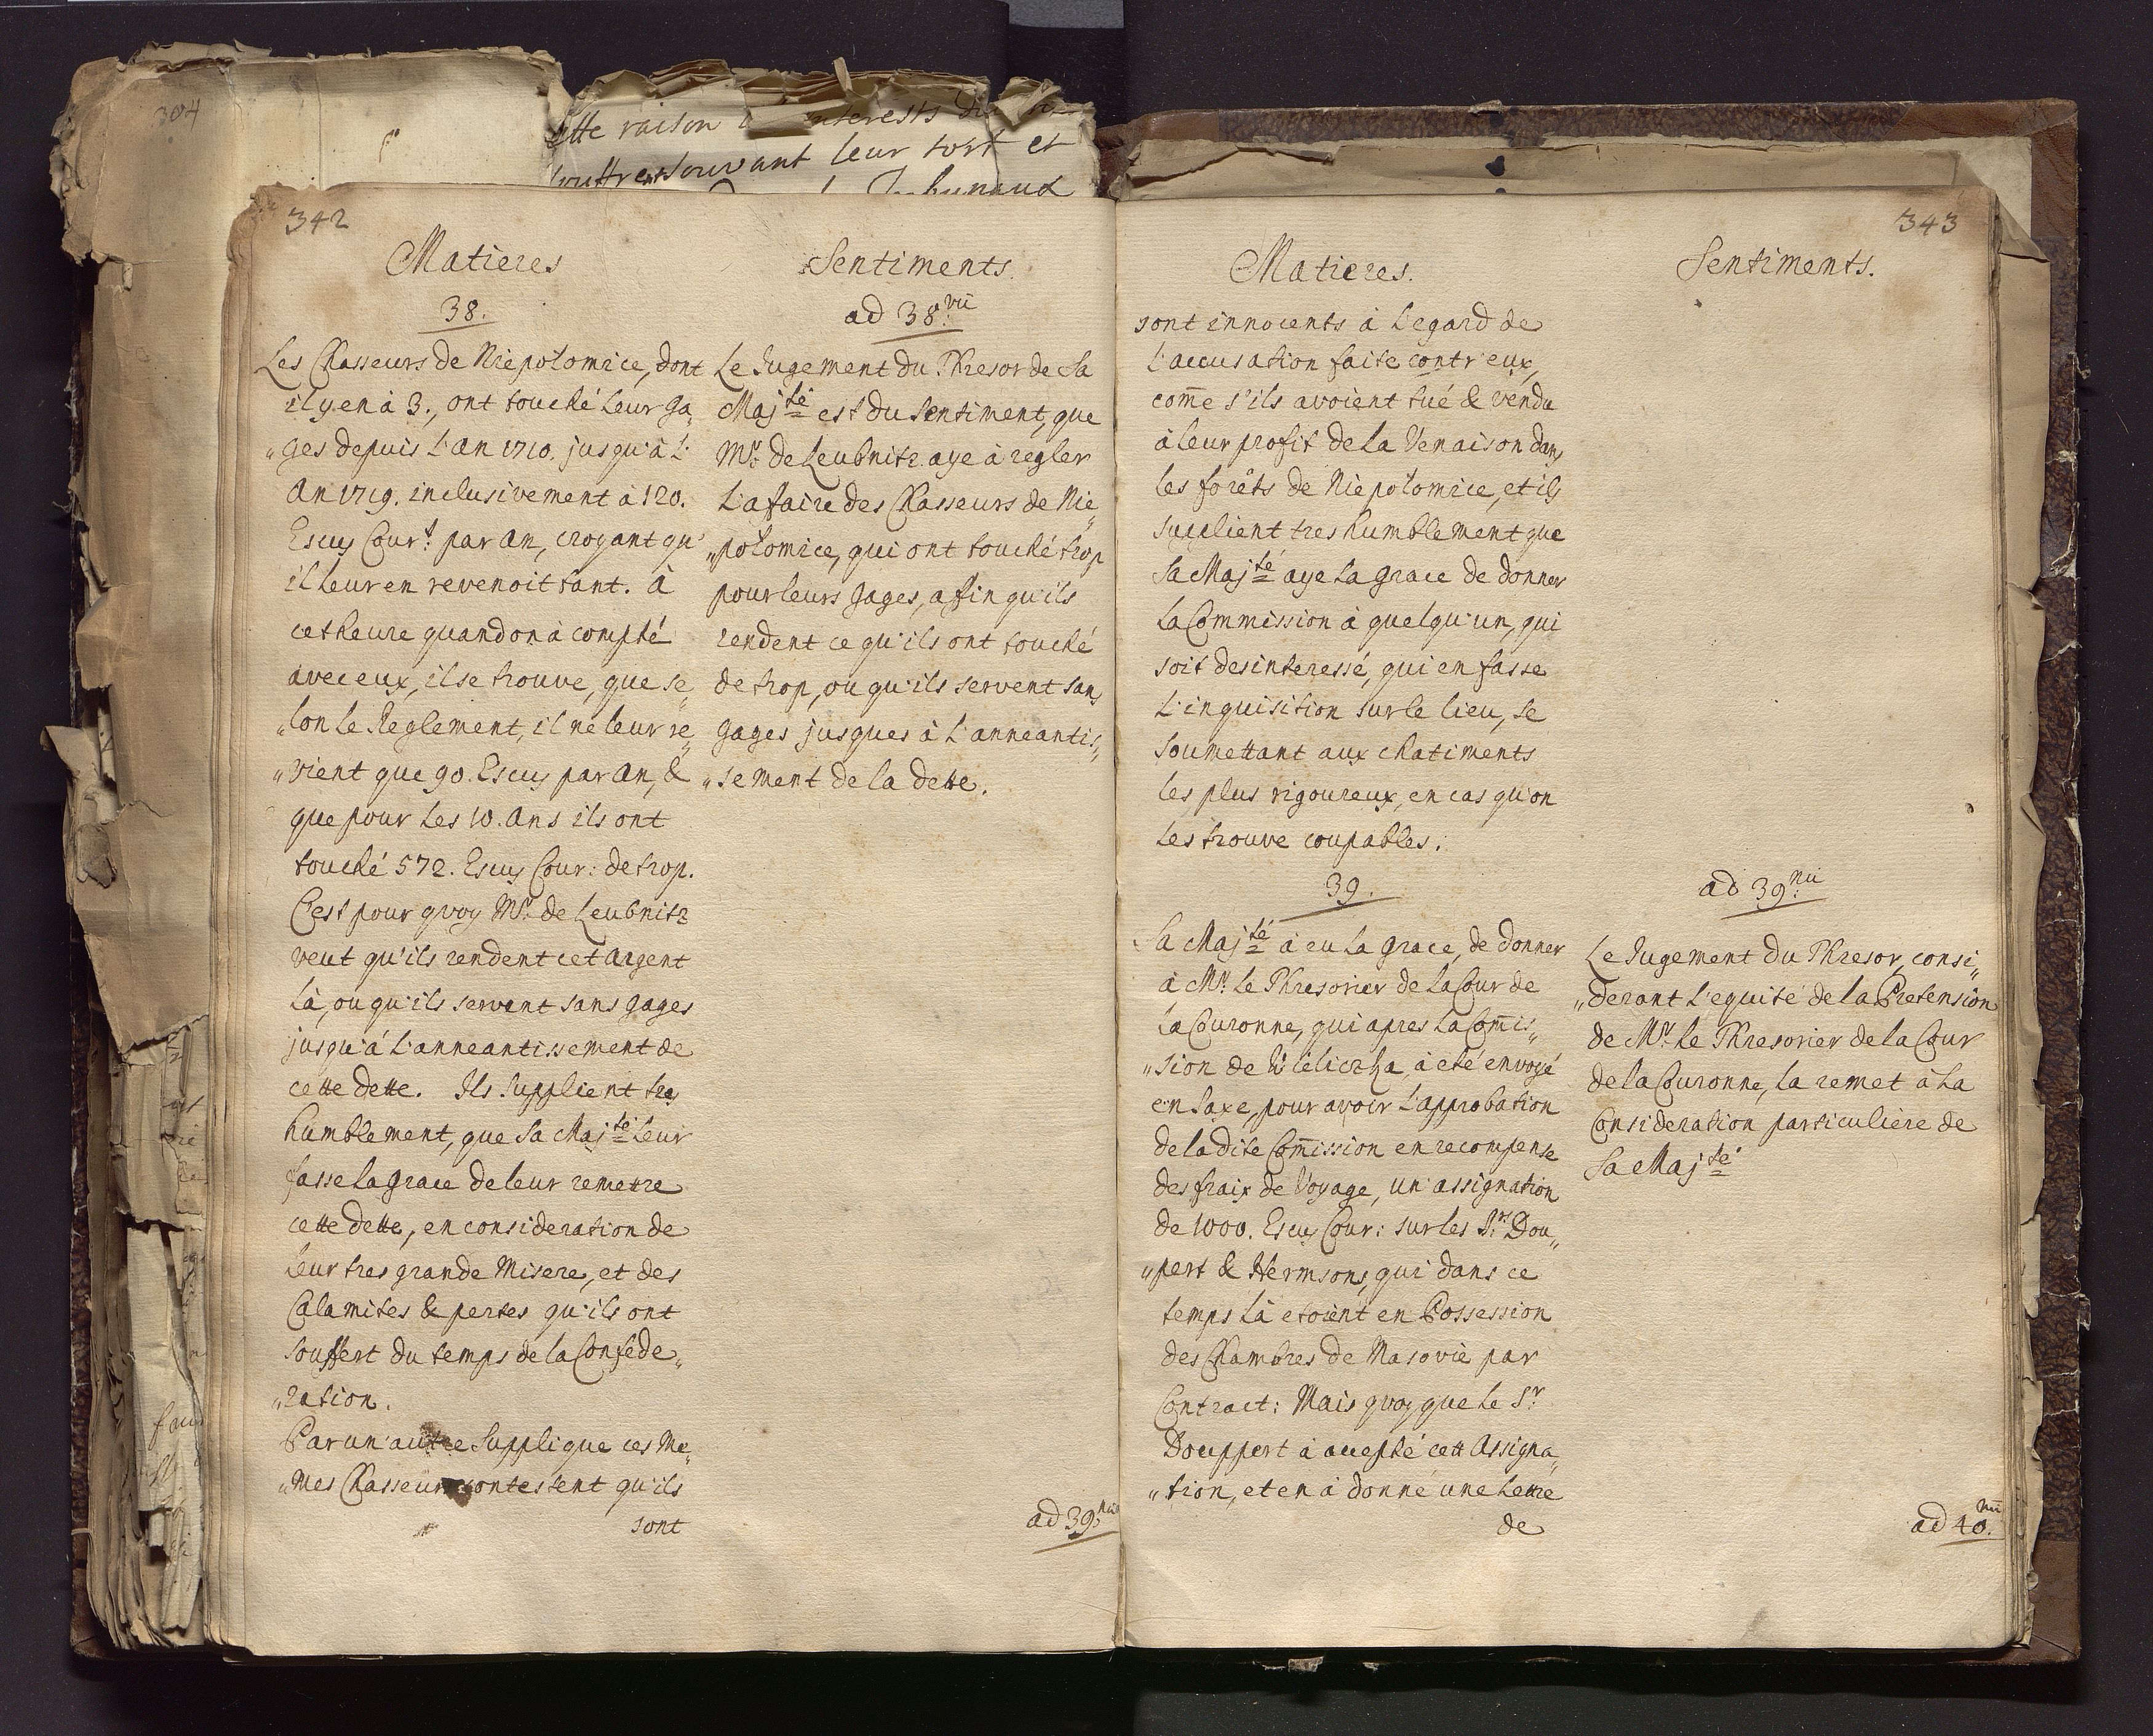 304
cette raison
interests
souffrent souvant leur tort et
342
Matieres
38.
Les Chasseurs de Niepolomice, dont
il y en à 3., ont touché leur ga„
„ges depuis L'an 1710. jusqu'à L'
An 1719. inclusivement à 120.
Escus Cour.t par An, croyant qu'
il leur en revenoit tant. à
cet heure quand on à compté
avec eux, il se trouve, que se„
„lon le Reglement, il ne leur re„
„vient que 90. Escus par An, &
que pour les 10. Ans ils ont
touché 572. Escus Cour: de trop.
C'est pour quoy Mr. de Leubnitz
veut qu'ils rendent cet Argent
là, ou qu'ils servent sans gages
jusqu'á L'anneantissement de
cette dette. Ils Supplient tres
humblement, que Sa Majté leur
fasse la grace de leur remettre
cette dette, en consideration de
leur tres grande Misere, et des
Calamites & pertes qu'ils ont
Souffert du temps de la Confede„
„ration.
Par un' autre Supplique ces Me„
„mes Chasseurs contestent qu'ils
sont
Sentiments.
ad 38.vũ
Le Jugement du Thresor de Sa
Majté est du Sentiment, que
Mr. de Leubnitz aye à regler
L'afaire des Chasseurs de Nie„
„polomice, qui ont touché trop
pour leurs gages, affin qu'ils
rendent ce qu'ils ont touché
de trop, ou qu'ils servent sans
gages jusques à L'anneantis„
„sement de la dette.
ad 39.nũ
343
Matieres.
sont innocents à L'egard de
L'accusation faite contr'eux,
com̄e s'ils avoient tué & vendu
à leur profit de la Venaison dans
les forêts de Niepolomice, et ils
supplient tres humblement que
Sa Majté aye la grace de donner
la Commission à quelqu'un, qui
soit desinteressé, qui en fasse
L'inquisition sur le lieu, se
soumettant aux chatiments
les plus rigoureux, en cas qu'on
les trouve coupables.
39.
Sa Majté à eu la grace, de donner
à Mr. le Thresorier de la Cour de
la Couronne, qui apres la Com̄is„
„sion de Wieliczka, à eté envoyé
en Saxe, pour avoir L'approbation
de la dite Com̄ission en recompense
des fraix de Voyage, un' assignation
de 1000. Escus Cour: sur les Srs Dou„
„pert & Hermsons, qui dans ce
temps là etoient en Possession
des Chambres de Masovie par
Contract: Mais quoy que le Sr.
Douppert à accepté cett Assigna„
„tion, et en à donné une lettre
de
Sentiments.
ad 39.nũ
Le Jugement du Thresor, consi„
„derant L'equité de la Pretension
de Mr. le Thresorier de la Cour
de la Couronne, la remet à la
Consideration particuliere de
Sa Majté
ad 40.nũ